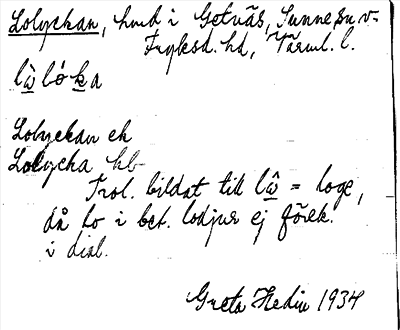 Lolyckan, hmd i Getnäs, Sunne sn v-
Fryksd. hd, Värml. l.
lὼ lóka
Lolyckan ek
Lolycka hb
Trol. bildat till lω̂ = loge,
då lo i bet. lodjur ej förek.
i dial.
Greta Hedin 1934